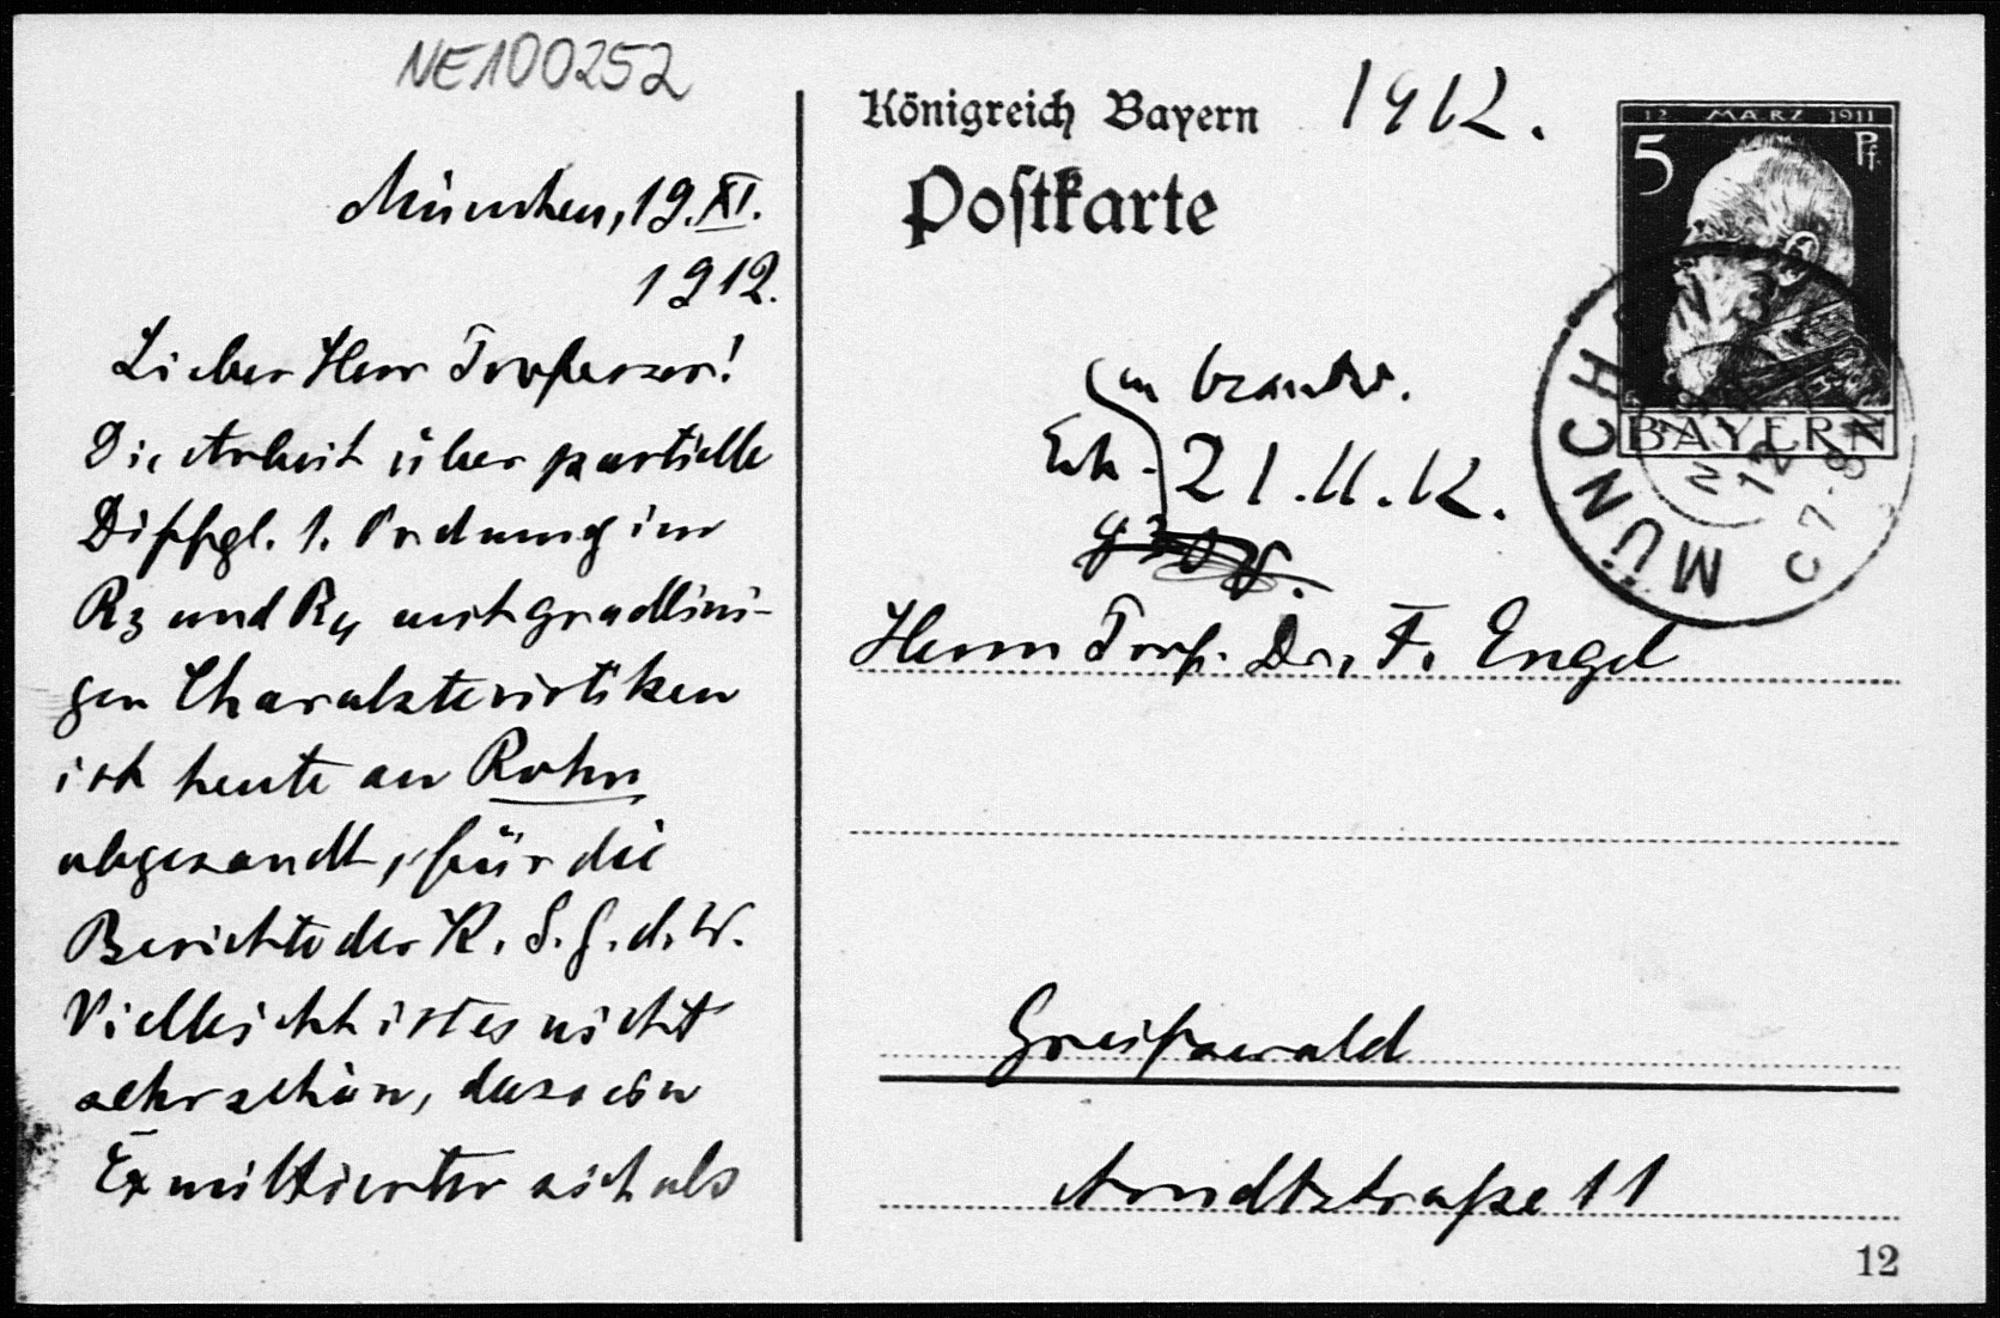 NE100252
München, 19. XI.
1912.
Lieber Herr Professor!
Die Arbeit über partielle
Diffgl. 1. Ordnung im
R3 und R4 mit gradlini-
gen Charakteristiken
ist heute an Rohn
abgesandt, für die
Berichte der K. S. G. d. W.
Vielleicht ist es nicht
sehr schön, dass ein
Exmittierter sich als
Königreich Bayern 1912.
Postkarte
12 MÄRZ 1911
5 Pf.
BAYERN
MÜNCH
12
C 7-8 N
beantw.
Erh. 21.11.12.
Herrn Prof. Dr. F. Engel
Greifswald
Arndtstraße 11
12